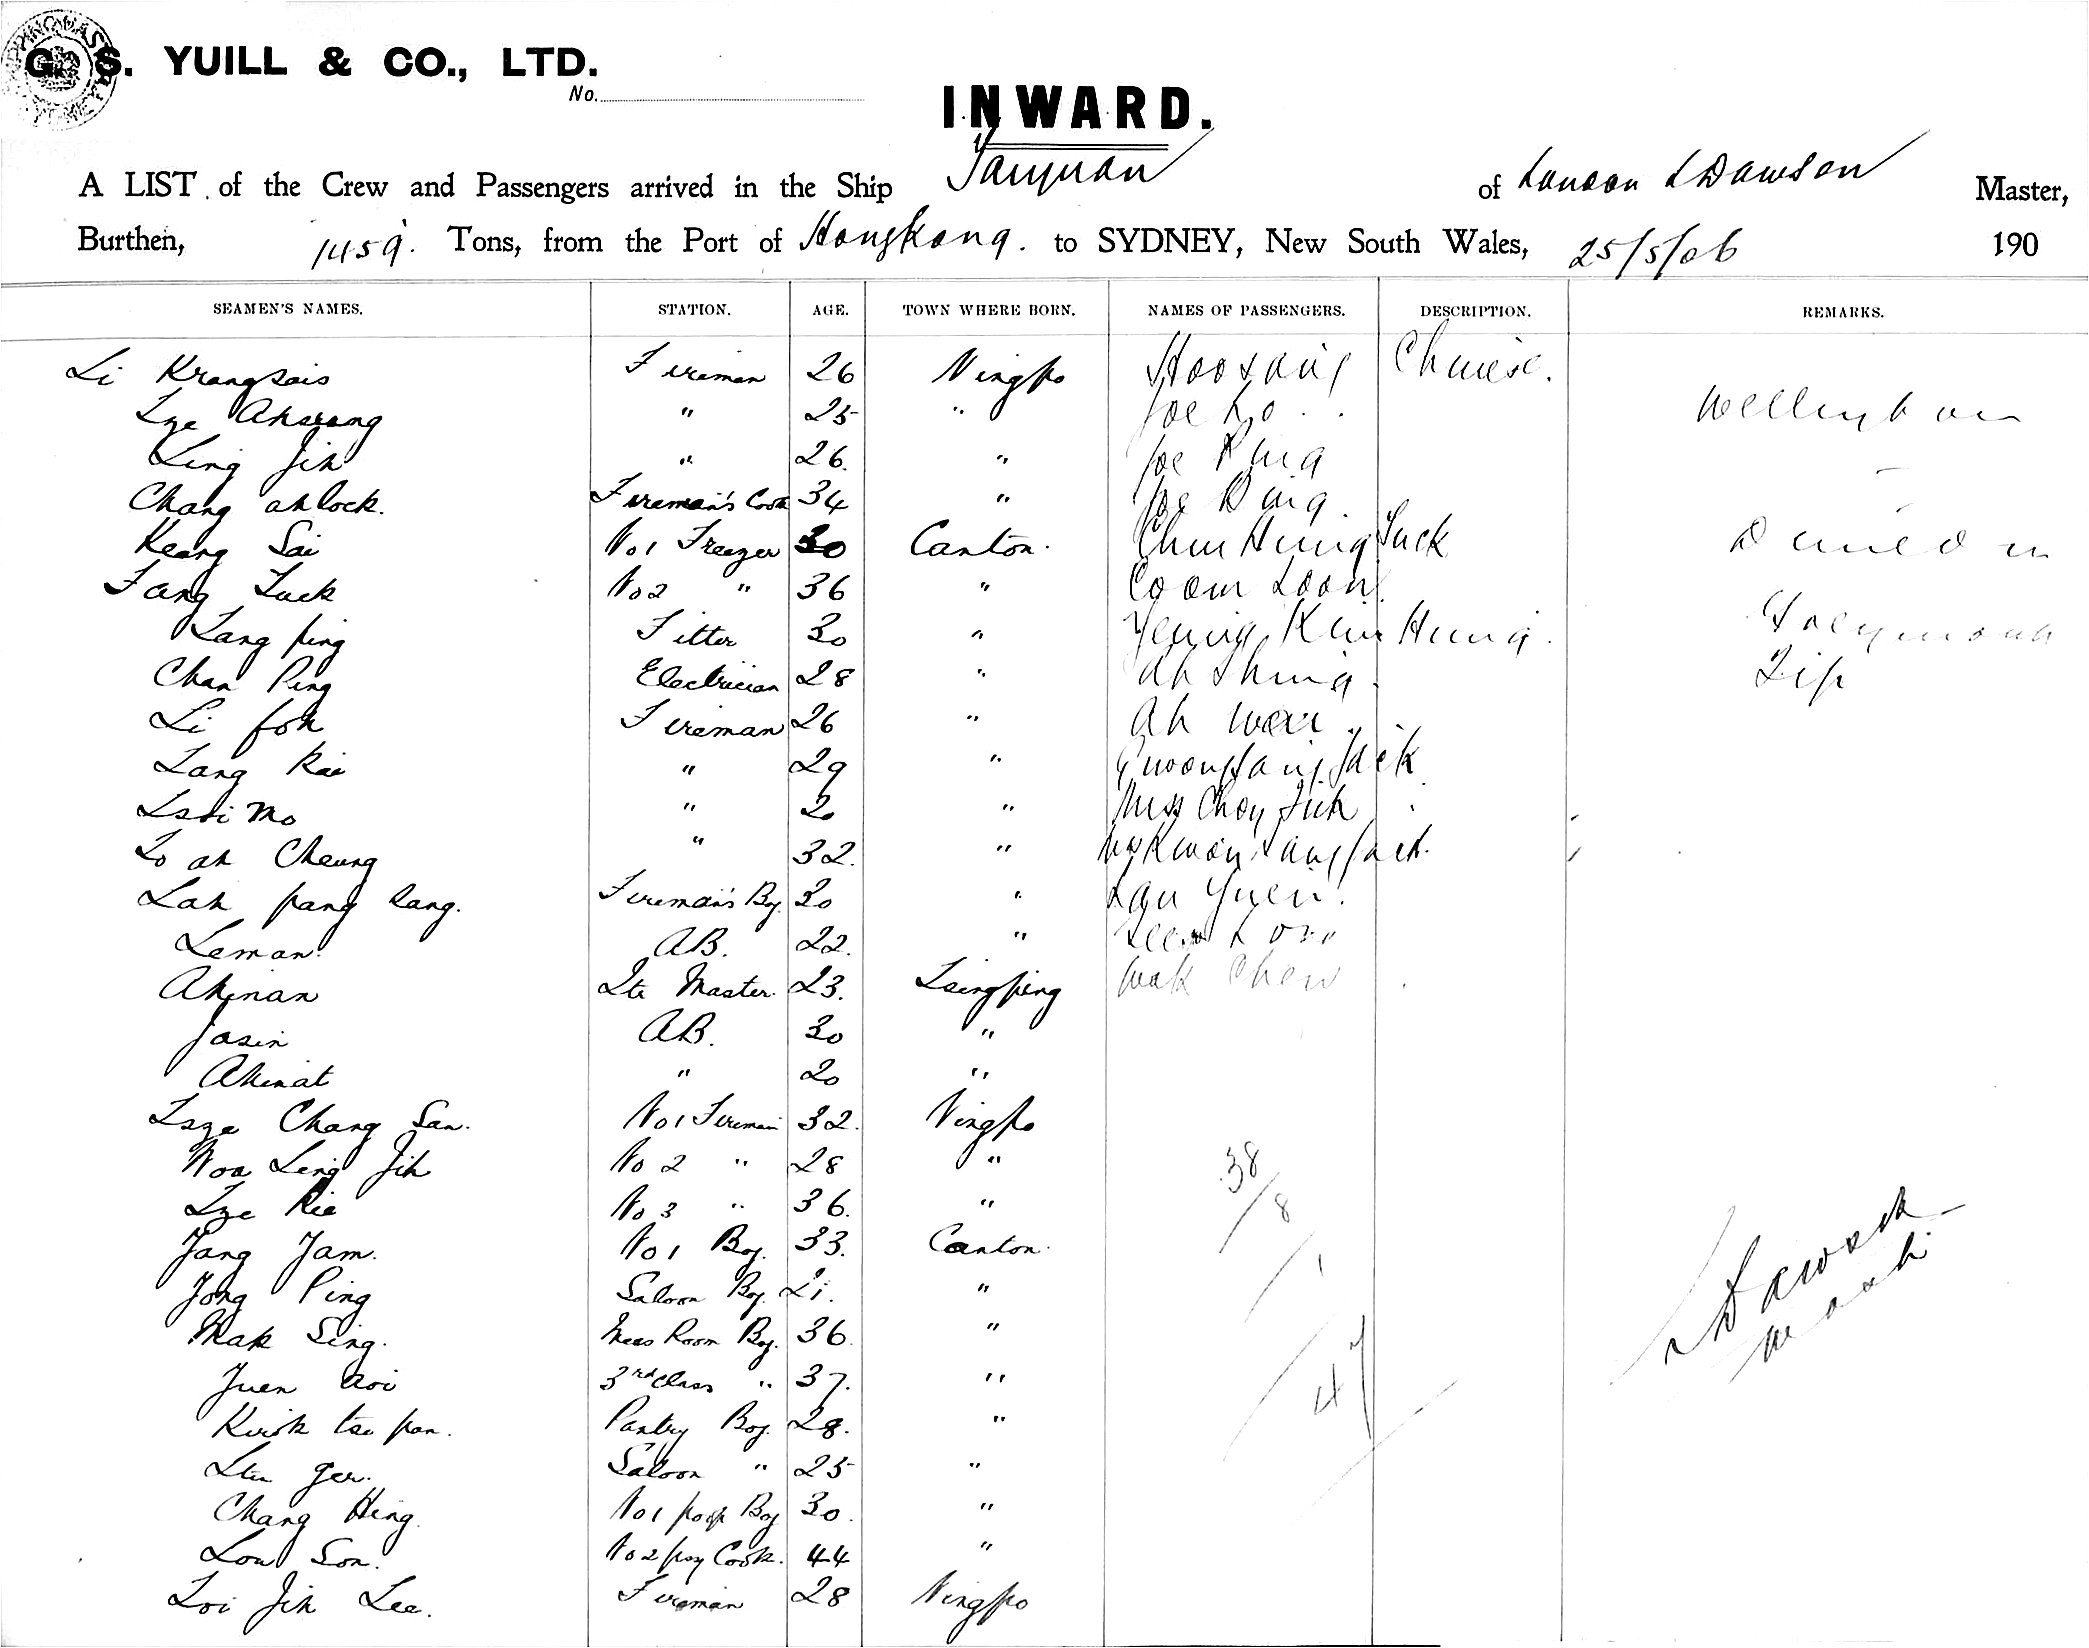 G. S. YUILL & CO., LTD.
No.
INWARD.
A LIST of the Crew and Passengers arrived in the Ship Taiyuan of London L Dawson Master,
Burthen, 1459. Tons, from the Port of Hongkong. to SYDNEY, New South Wales, 25/5/06 190
SEAMEN'S NAMES. STATION. AGE. TOWN WHERE BORN. NAMES OF PASSENGERS. DESCRIPTION. REMARKS.
Li Fireman 26 Ningpo Chinese.
" 25 " Joe Wellington
Ling Jih " 26. " Joe
Chang ah lock. Fireman's Cook 34 " Joe
Keang Sai No 1 Freezer 30 Canton. Hung Tuck Dunedin
Fang Tuck No 2 " 36 " Loon
Tang ping Fitter 30 " Yeung Kim Hung. Greymouth
Chan Ping Electrician 28 " Ah Shing.
Li foh Fireman 26 " Ah
Tang Kai " 29 "
Mo " 20 " Miss Choy
Lo ah Cheung " 32. "
Lah pang lang. Fireman's Boy 20 " Yuen.
Leman. AB. 22. "
Akinan Qtr Master. 23. Tsingping Wak Chew
Jasin AB. 30 "
Akinat " 20 "
Tsze Chang San. No 1 Fireman 32. Ningpo
Woo Ling Jih No 2 " 28 " 38
No 3 " 36. " 8
Yang Yam. No 1 Boy. 33. Canton. 1
Yong Ping Saloon Boy. 21. "
Mak Sing. Mess Room Boy. 36. " 47
Yuen 3rd Class " 37. "
Kwok tse pan. Pantry Boy. 28. "
Saloon " 25 "
Chang Hing. No 1 poop Boy 30. "
Low Son. No 2 Cook. 44 "
Loi Jih Lee. Fireman 28 Ningpo
L Dawson